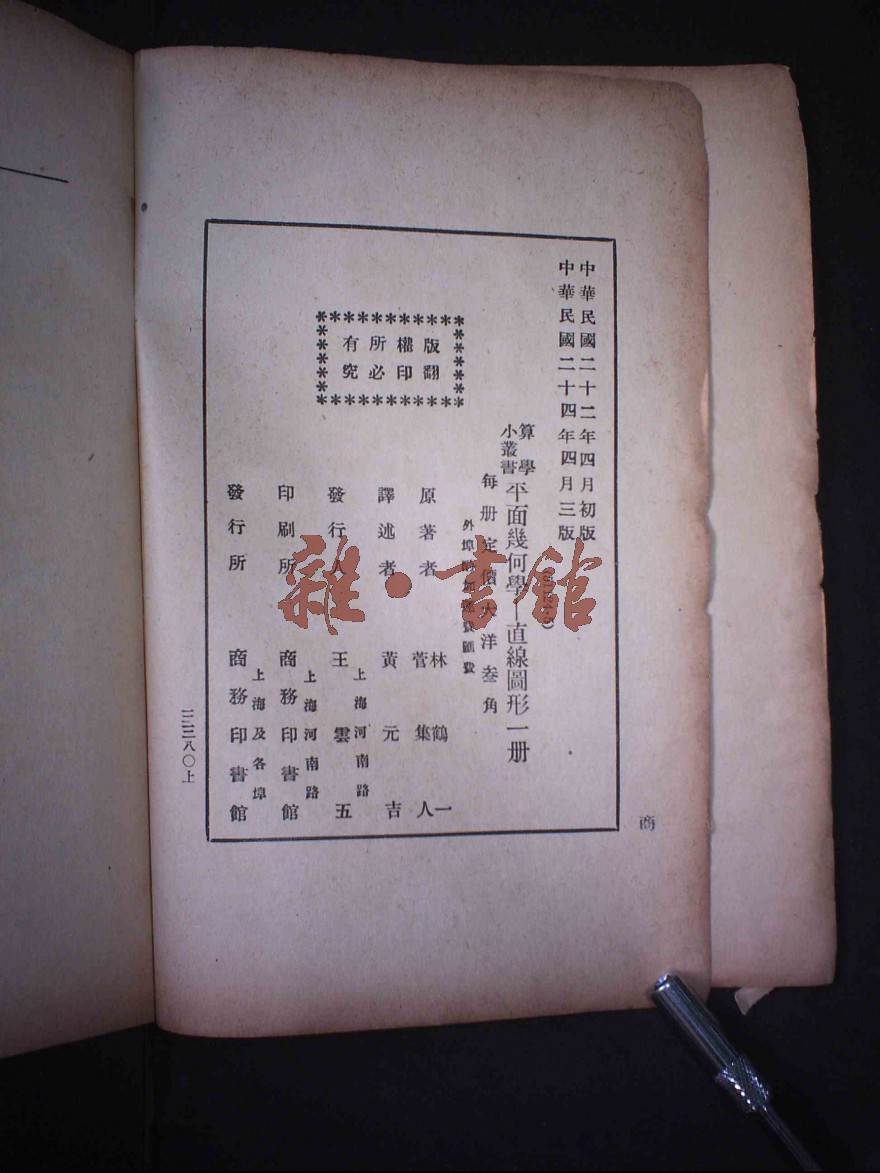 中華民國二十二年四月初版
中華民國二十四年四月三版
算學
小叢書
平面幾何學—直線圖形一册
每册定價大洋叁角
外埠酌加運費匯費
原著者
林鶴一
菅集人
譯述者
黃元吉
發行人
上海河南路
王雲五
印刷所
上海河南路
商務印書館
發行所
上海及各埠
商務印書館
版權所有
翻印必究
三三八〇上
商
雜·書館